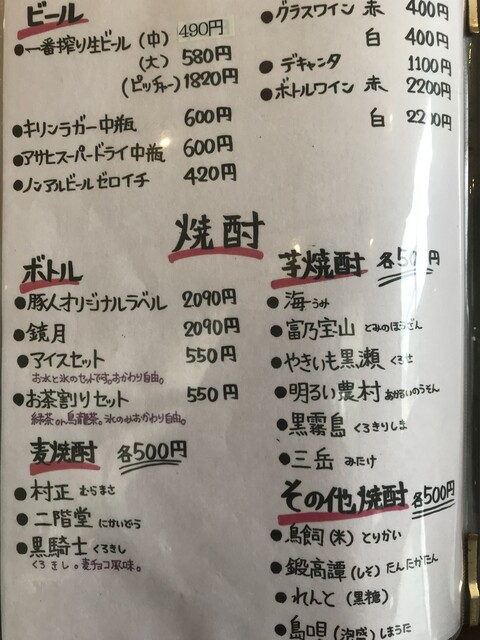 ビール
●一番搾り生ビール (中) 490円
(大) 580円
(ピッチャー) 1820円
●キリンラガー中瓶 600円
●アサヒスーパードライ中瓶 600円
●ノンアルビールゼロイチ 420円
●グラスワイン 赤 400円
白 400円
●デキャンタ 1100円
●ボトルワイン 赤 2200円
白 2200円
焼酎
ボトル
●豚人オリジナルラベル 2090円
●鏡月 2090円
●アイスセット 550円
お水と氷のセットです。おかわり自由。
●お茶割りセット 550円
緑茶or烏龍茶。氷のみおかわり自由。
麦焼酎 各500円
●村正 むらまさ
●二階堂 にかいどう
●黒騎士 くろきし
くろきし。麦チョコ風味。
芋焼酎 各500円
●海 うみ
●富乃宝山 とみのほうざん
●やきいも黒瀬 くろせ
●明るい農村 あかるいのうそん
●黒霧島 くろきりしま
●三岳 みたけ
その他焼酎 各500円
●鳥飼(米) とりかい
●鍛高譚(しそ) たんたかたん
●れんと (黒糖)
●島唄 (泡盛) しまうた